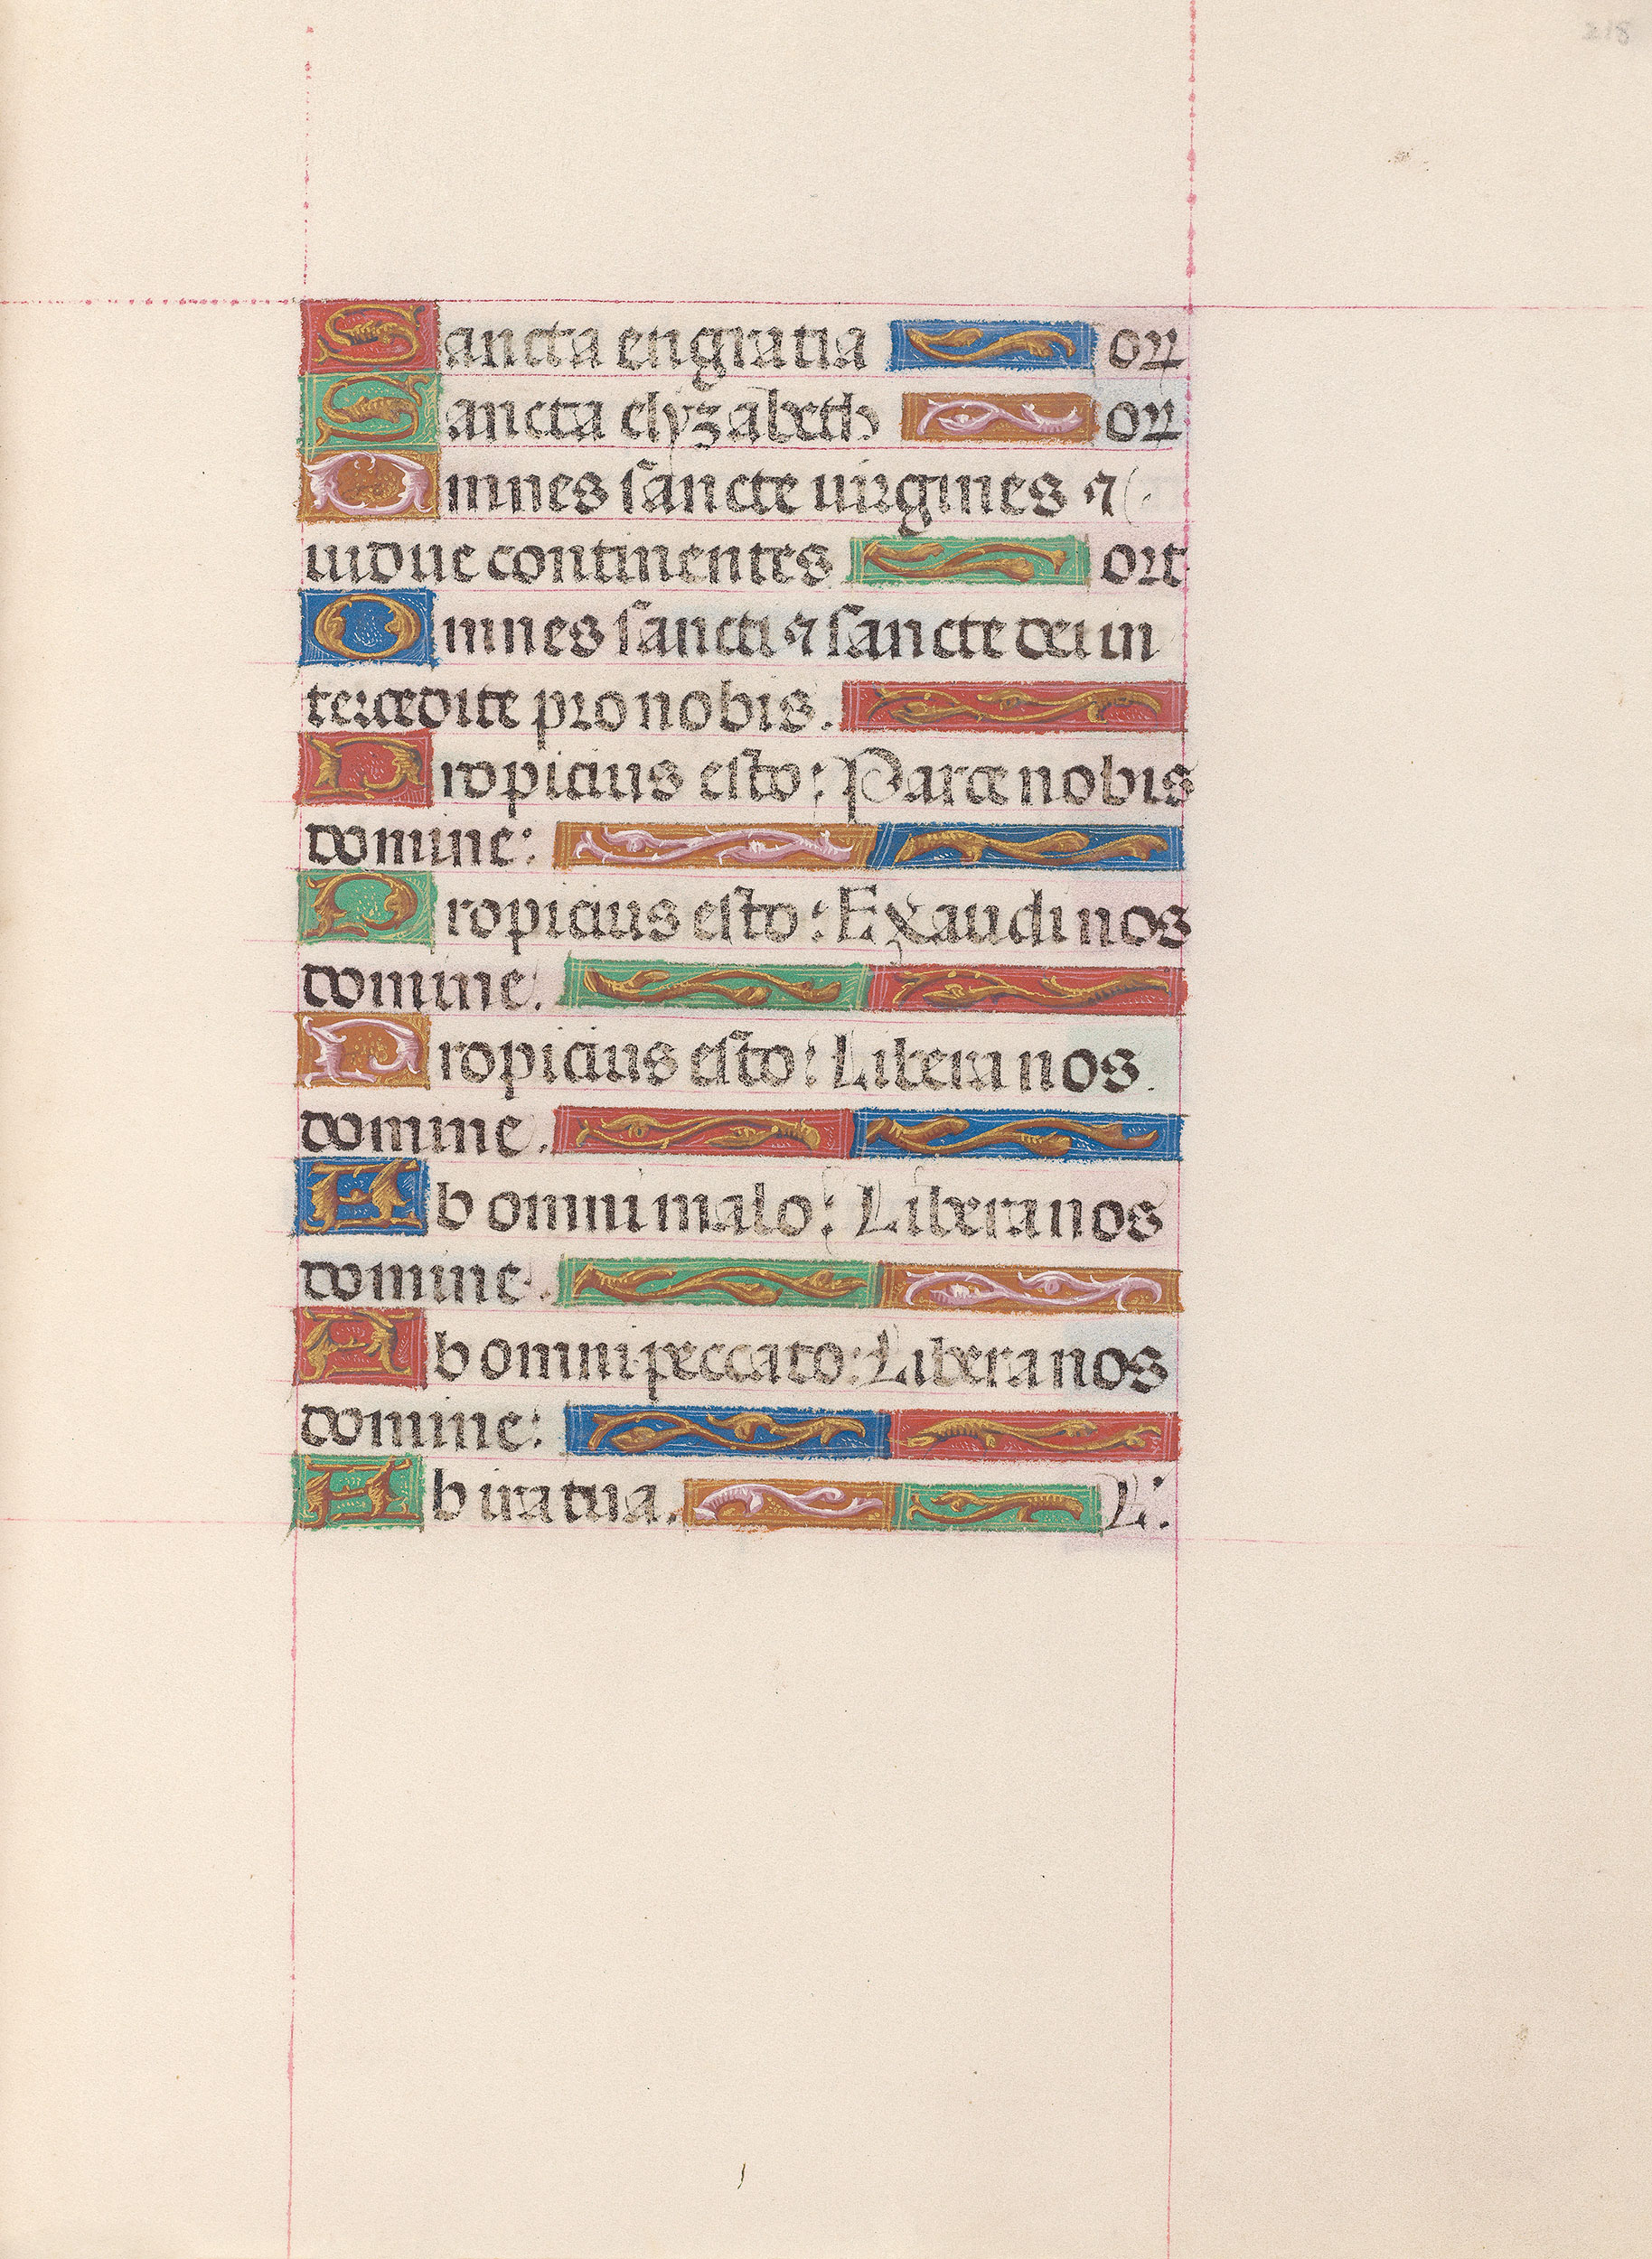 218
Sancta engratia or
Sancta elyzabeth or
Omnes sancte uirgines ⁊
uidue continentes ort
Omnes sancti ⁊ sancte dei in
tercedite pro nobis.
Propicius esto: Parce nobis
domine:
Propicius esto: Exaudi nos
domine.
Propicius esto: Libera nos
domine.
Ab omni malo: Libera nos
domine.
Ab omni peccato: Libera nos
domine:
Ab ira tua. Li: